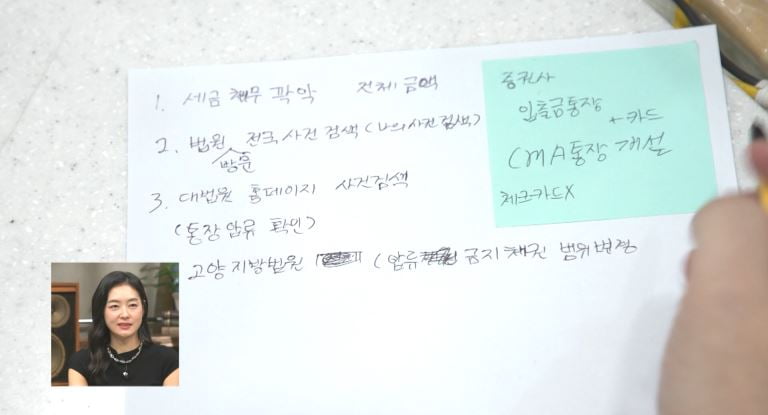 1. 세금 채무 파악 전체 금액
2. 법원 전국 사건 검색 (나의 사건 검색)
방문
3. 대법원 홈페이지 사건검색
(통장 압류 확인)
고양지방법원 (압류 금지 채권 범위변경
증권사
입출금통장
+ 카드
CMA통장 개설
체크카드X